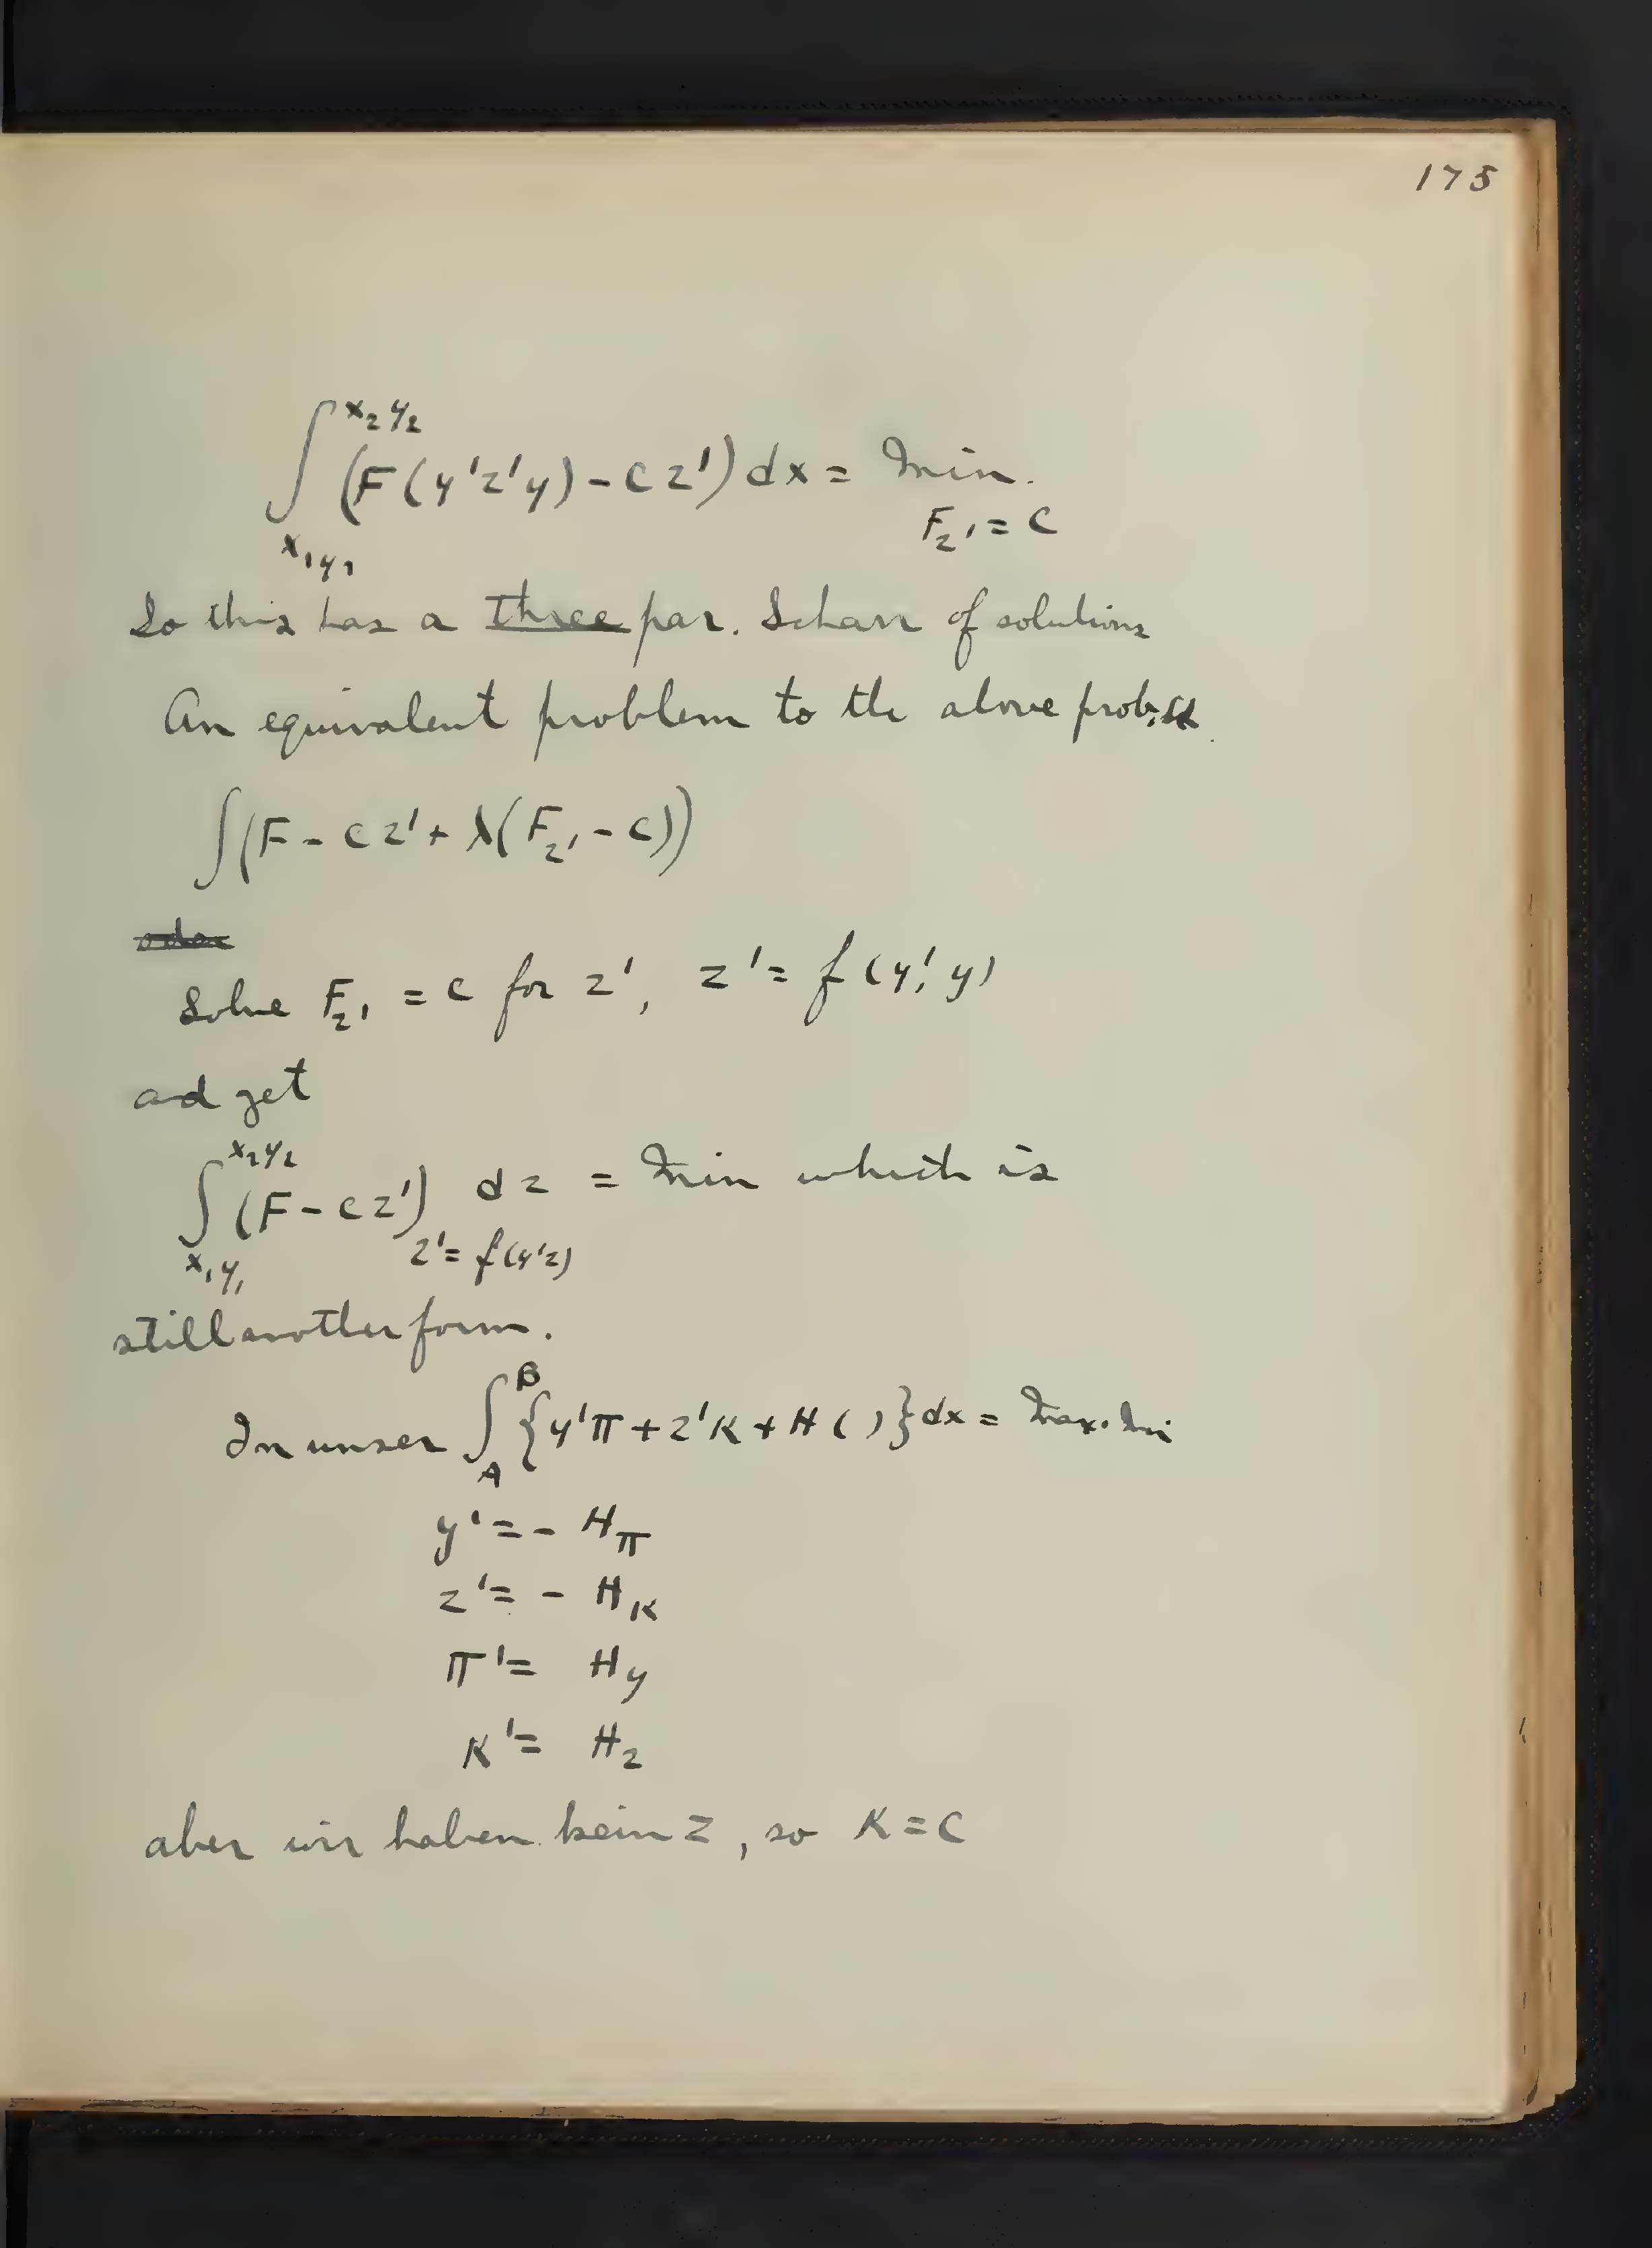 175
∫_{x₁y₁}^{x₂y₂} (F(y'z'y) - cz') dx = Min.
F_{z'} = c
So this has a three par. Schaar of solutions
An equivalent problem to the above prob.
∫(F - cz' + λ(F_{z'} - c))
oder
Solve F_{z'} = c for z', z' = f(y', y)
and get
∫_{x₁y₁}^{x₂y₂} (F - cz')_{z' = f(y'z)} dz = Min which is
still another form.
In unser ∫_A^B {y'π + z'K + H( )}dx = Max. Min
y' = - H_π
z' = - H_K
π' = H_y
K' = H_z
aber wir haben kein z, so K = c